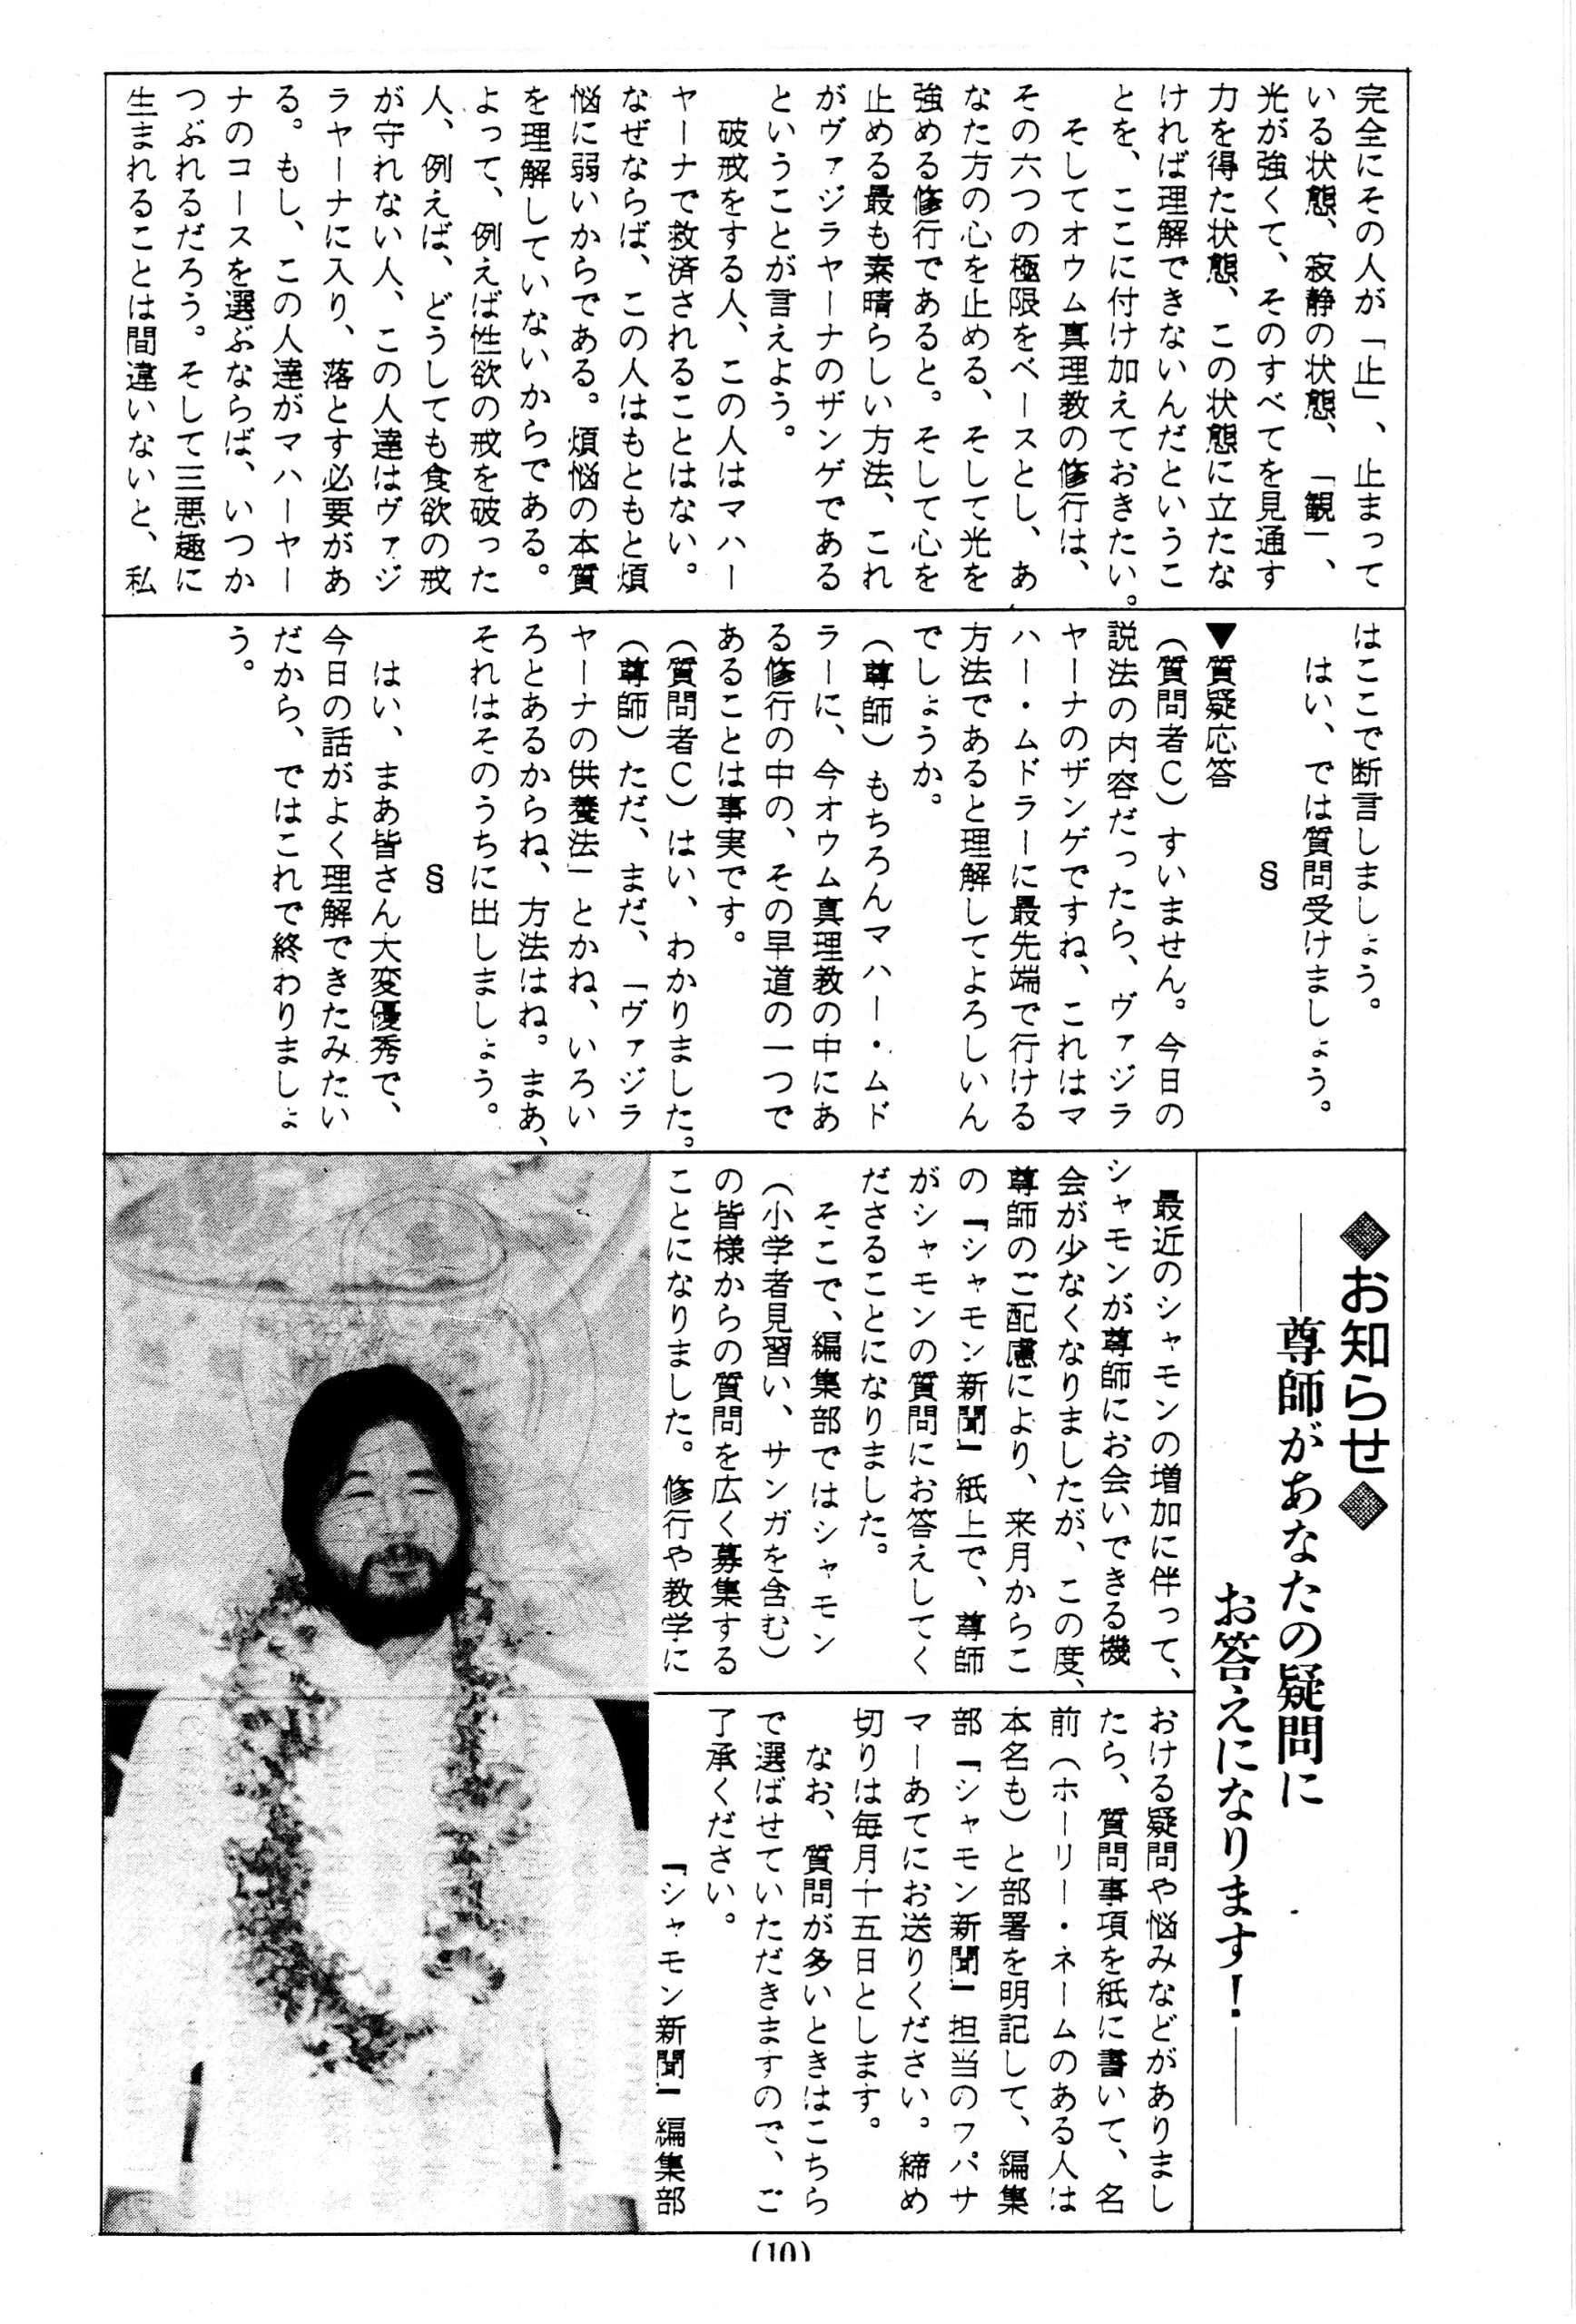 完全にその人が「止」、止まって
いる状態、寂静の状態、「観」、
光が強くて、そのすべてを見通す
力を得た状態、この状態に立たな
ければ理解できないんだというこ
とを、ここに付け加えておきたい。
そしてオウム真理教の修行は、
その六つの極限をベースとし、あ
なた方の心を止める、そして光を
強める修行であると。そして心を
止める最も素晴らしい方法、これ
がヴァジラヤーナのザンゲである
ということが言えよう。
破戒をする人、この人はマハー
ヤーナで救済されることはない。
なぜならば、この人はもともと煩
悩に弱いからである。煩悩の本質
を理解していないからである。
よって、例えば性欲の戒を破った
人、例えば、どうしても食欲の戒
が守れない人、この人達はヴァジ
ラヤーナに入り、落とす必要があ
る。もし、この人達がマハーヤー
ナのコースを選ぶならば、いつか
つぶれるだろう。そして三悪趣に
生まれることは間違いないと、私
はここで断言しましょう。
はい、では質問受けましょう。
§
▼質疑応答
(質問者C)すいません。今日の
説法の内容だったら、ヴァジラ
ヤーナのザンゲですね、これはマ
ハー・ムドラーに最先端で行ける
方法であると理解してよろしいん
でしょうか。
(尊師)もちろんマハー・ムド
ラーに、今オウム真理教の中にあ
る修行の中の、その早道の一つで
あることは事実です。
(質問者C)はい、わかりました。
(尊師)ただ、まだ、「ヴァジラ
ヤーナの供養法」とかね、いろい
ろとあるからね、方法はね。まあ、
それはそのうちに出しましょう。
§
はい、まあ皆さん大変優秀で、
今日の話がよく理解できたみたい
だから、ではこれで終わりましょ
う。
◆お知らせ◆
――尊師があなたの疑問に
お答えになります!――
最近のシャモンの増加に伴って、
シャモンが尊師にお会いできる機
会が少なくなりましたが、この度、
尊師のご配慮により、来月からこ
の『シャモン新聞』紙上で、尊師
がシャモンの質問にお答えしてく
ださることになりました。
そこで、編集部ではシャモン
(小学者見習い、サンガを含む)
の皆様からの質問を広く募集する
ことになりました。修行や教学に
おける疑問や悩みなどがありまし
たら、質問事項を紙に書いて、名
前(ホーリー・ネームのある人は
本名も)と部署を明記して、編集
部『シャモン新聞』担当のワパサ
マーあてにお送りください。締め
切りは毎月十五日とします。
なお、質問が多いときはこちら
で選ばせていただきますので、ご
了承ください。
『シャモン新聞』編集部
(10)